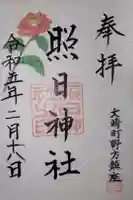 奉拝
大崎町野方鎮座
照日神社
令和五年二月十八日